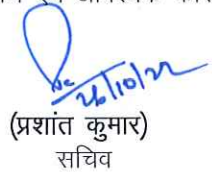 26/10/22
(प्रशांत कुमार)
सचिव